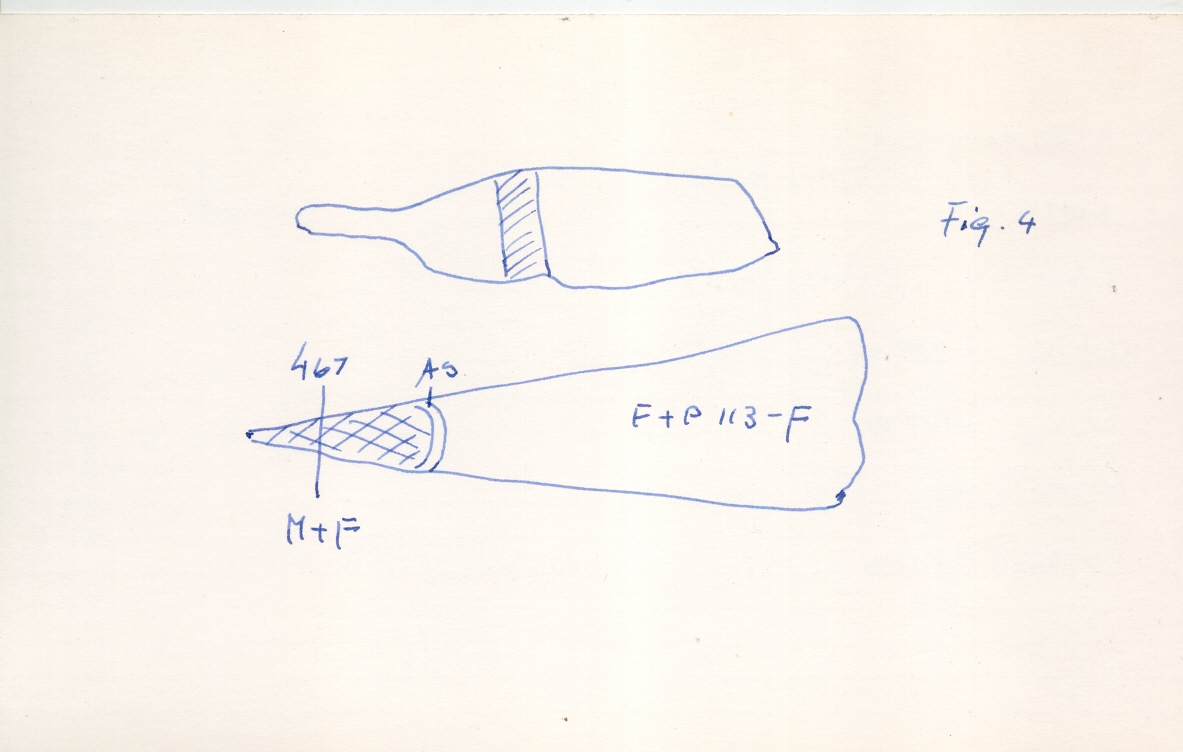 Fig. 4
467
AS
F+P 113-F
M+F